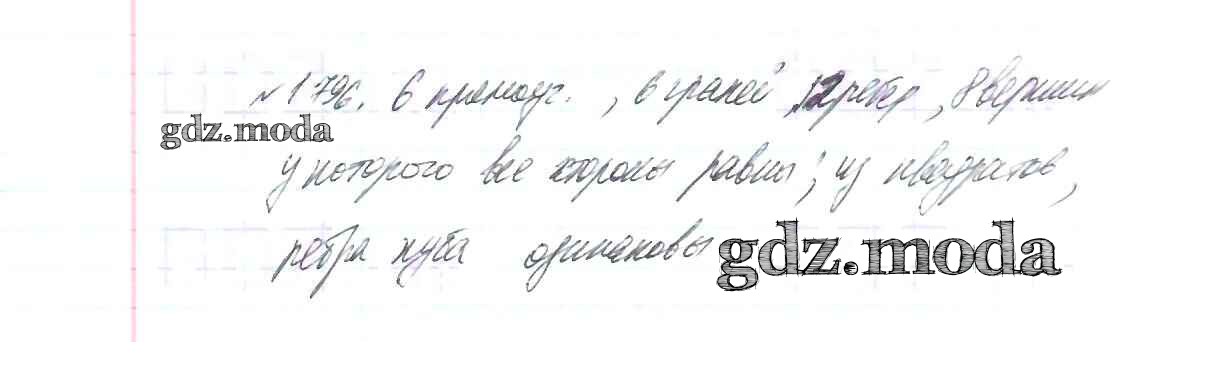 №1796. 6 прямоуг., 6 граней, 12 ребер, 8 вершин
gdz.moda
у которого все стороны равны; из квадратов,
ребра куба одинаковы
gdz.moda